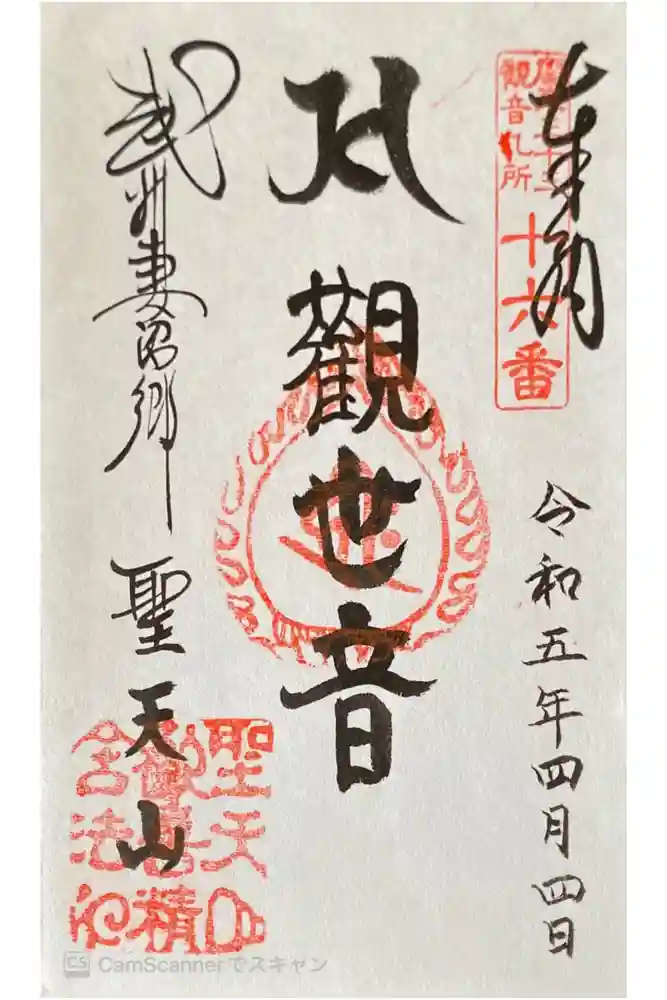 奉納
觀音札所
十六番
令和五年四月四日
觀世音
武州妻沼郷
聖天山
聖天山
歡喜精
舎法印
CS CamScannerでスキャン